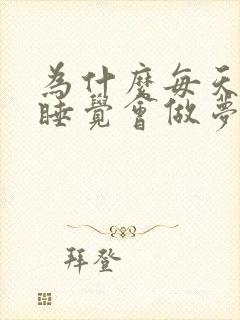 為什麼每天
睡覺會做夢
拜登